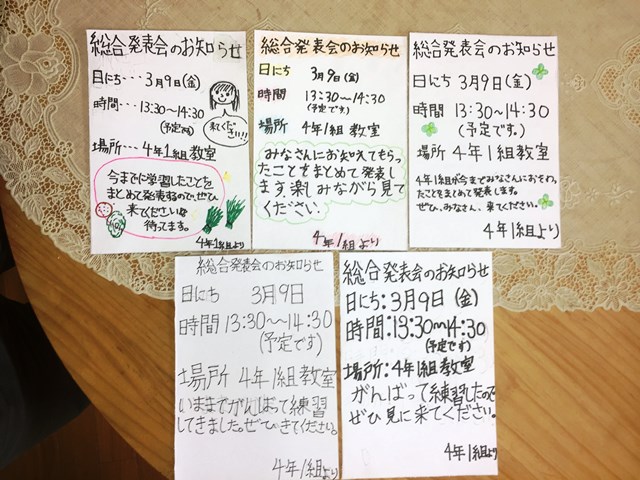 総合発表会のお知らせ
日にち・・・3月9日(金)
時間・・・13:30〜14:30
(予定です)
来てくだ
さい!!
場所・・・4年1組教室
今までに学習したことを
まとめて発表するのでぜひ
来てくださいね
待ってます。
4年1組より
総合発表会のお知らせ
日にち 3月9日(金)
時間 13:30〜14:30
(予定です)
場所 4年1組 教室
みなさんにお知えてもらっ
たことをまとめて発表し
ます楽しみながら見て
ください。
4年1組より
総合発表会のお知らせ
日にち 3月9日(金)
時間 13:30〜14:30
(予定です。)
場所 4年1組教室
4年1組が今までみなさんにおそわっ
たことをまとめて発表します。
ぜひ、みなさん、来てください。
4年1組より
総合発表会のお知らせ
日にち 3月9日
時間 13:30〜14:30
(予定です)
場所 4年1組教室
いままでがんばって練習
してきました。ぜひ、きてください。
4年1組より
総合発表会のお知らせ
日にち:3月9日(金)
時間:13:30〜14:30
(予定です)
場所:4年1組教室
がんばって練習したので
ぜひ見に来てください。
4年1組より